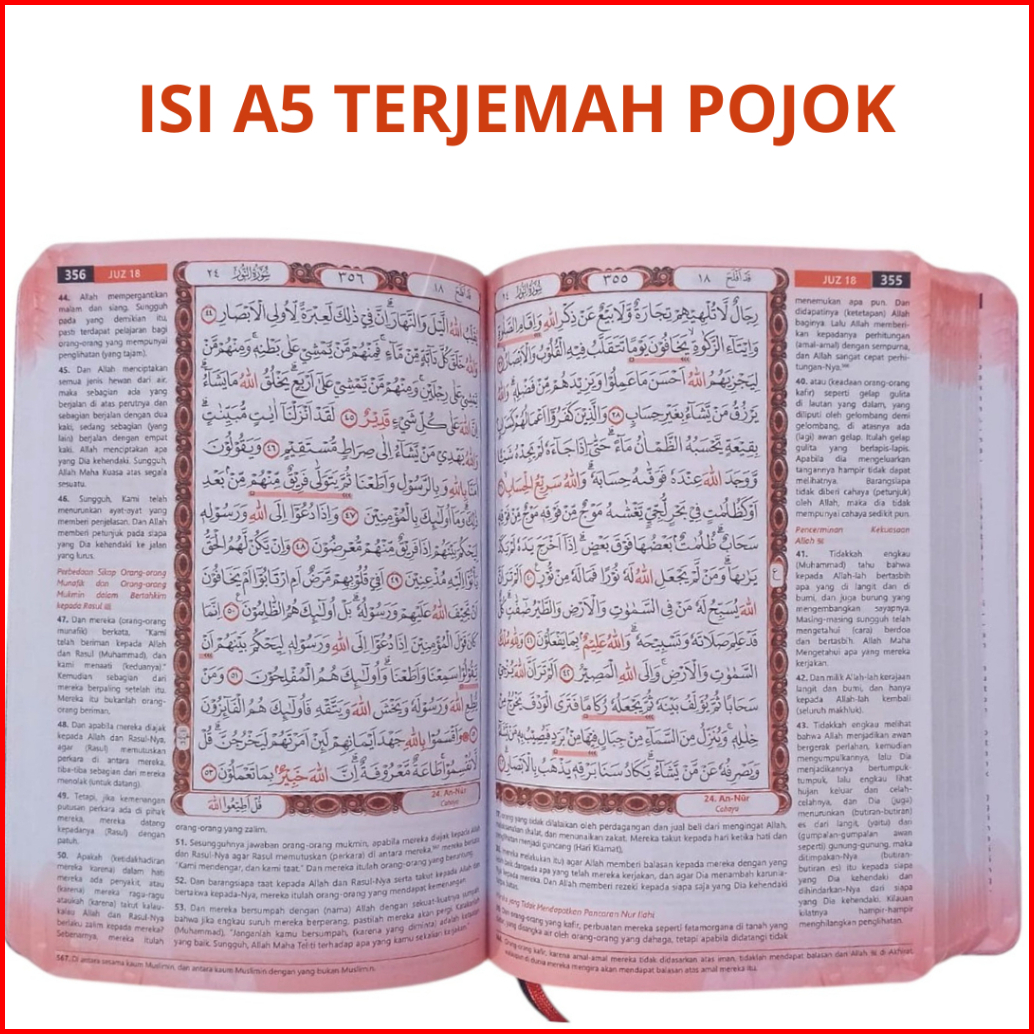 ISI A5 TERJEMAH POJOK
JUZ 18 355
قد افلح ١٨
٣٥٥
سورة النور ٢٤
رِجَالٌ لَّا تُلْهِيْهِمْ تِجَارَةٌ وَّلَا بَيْعٌ عَنْ ذِكْرِ اللّٰهِ وَاِقَامِ الصَّلٰوةِ
وَاِيْتَاۤءِ الزَّكٰوةِ يَخَافُوْنَ يَوْمًا تَتَقَلَّبُ فِيْهِ الْقُلُوْبُ وَالْاَبْصَارُ
لِيَجْزِيَهُمُ اللّٰهُ اَحْسَنَ مَا عَمِلُوْا وَيَزِيْدَهُمْ مِّنْ فَضْلِهٖ وَاللّٰهُ
يَرْزُقُ مَنْ يَّشَاۤءُ بِغَيْرِ حِسَابٍ ٣٨ وَالَّذِيْنَ كَفَرُوْٓا اَعْمَالُهُمْ كَسَرَابٍ
بِقِيْعَةٍ يَّحْسَبُهُ الظَّمْاٰنُ مَاۤءً حَتّٰىٓ اِذَا جَاۤءَهٗ لَمْ يَجِدْهُ شَيْـًٔا
وَّوَجَدَ اللّٰهَ عِنْدَهٗ فَوَفّٰىهُ حِسَابَهٗ وَاللّٰهُ سَرِيْعُ الْحِسَابِ
اَوْ كَظُلُمٰتٍ فِيْ بَحْرٍ لُّجِّيٍّ يَّغْشٰىهُ مَوْجٌ مِّنْ فَوْقِهٖ مَوْجٌ مِّنْ فَوْقِهٖ
سَحَابٌ ظُلُمٰتٌ بَعْضُهَا فَوْقَ بَعْضٍ اِذَآ اَخْرَجَ يَدَهٗ لَمْ يَكَدْ
يَرٰىهَا وَمَنْ لَّمْ يَجْعَلِ اللّٰهُ لَهٗ نُوْرًا فَمَا لَهٗ مِنْ نُّوْرٍ ٤٠ اَلَمْ تَرَ اَنَّ
اللّٰهَ يُسَبِّحُ لَهٗ مَنْ فِى السَّمٰوٰتِ وَالْاَرْضِ وَالطَّيْرُ صٰۤفّٰتٍ كُلٌّ
قَدْ عَلِمَ صَلَاتَهٗ وَتَسْبِيْحَهٗ وَاللّٰهُ عَلِيْمٌ بِمَا يَفْعَلُوْنَ ٤١ وَلِلّٰهِ مُلْكُ
السَّمٰوٰتِ وَالْاَرْضِ وَاِلَى اللّٰهِ الْمَصِيْرُ ٤٢ اَلَمْ تَرَ اَنَّ اللّٰهَ يُزْجِيْ
سَحَابًا ثُمَّ يُؤَلِّفُ بَيْنَهٗ ثُمَّ يَجْعَلُهٗ رُكَامًا فَتَرَى الْوَدْقَ يَخْرُجُ مِنْ
خِلٰلِهٖ وَيُنَزِّلُ مِنَ السَّمَاۤءِ مِنْ جِبَالٍ فِيْهَا مِنْۢ بَرَدٍ فَيُصِيْبُ بِهٖ
وَيَصْرِفُهٗ عَنْ مَّنْ يَّشَاۤءُ يَكَادُ سَنَا بَرْقِهٖ يَذْهَبُ بِالْاَبْصَارِ
24. An-Nūr
Cahaya
orang yang tidak dilalaikan oleh perdagangan dan jual beli dari mengingat Allah,
melaksanakan shalat, dan menunaikan zakat. Mereka takut kepada hari ketika hati dan
menjadi guncang (Hari Kiamat),
mereka melakukan itu) agar Allah memberi balasan kepada mereka dengan yang
daripada apa yang telah mereka kerjakan, dan agar Dia menambah karunia-
kepada mereka. Dan Allah memberi rezeki kepada siapa saja yang Dia kehendaki
batas.
yang Tidak Mendapatkan Pancaran Nur Ilahi
orang-orang yang kafir, perbuatan mereka seperti fatamorgana di tanah yang
yang disangka air oleh orang-orang yang dahaga, tetapi apabila didatangi tidak
menemukan apa pun. Dan
didapatinya (ketetapan) Allah
baginya. Lalu Allah memberi-
kan kepadanya perhitungan
(amal-amal) dengan sempurna,
dan Allah sangat cepat perhi-
tungan-Nya.
40. atau (keadaan orang-orang
kafir) seperti gelap gulita
di lautan yang dalam, yang
diliputi oleh gelombang demi
gelombang, di atasnya ada
(lagi) awan gelap. Itulah gelap
gulita yang berlapis-lapis.
Apabila dia mengeluarkan
tangannya hampir tidak dapat
melihatnya. Barangsiapa
tidak diberi cahaya (petunjuk)
oleh Allah, maka dia tidak
mempunyai cahaya sedikit pun.
Pencerminan Kekuasaan
Allah
41. Tidakkah engkau
(Muhammad) tahu bahwa
kepada Allah-lah bertasbih
apa yang di langit dan di
bumi, dan juga burung yang
mengembangkan sayapnya.
Masing-masing sungguh telah
mengetahui (cara) berdoa
dan bertasbih. Allah Maha
Mengetahui apa yang mereka
kerjakan.
42. Dan milik Allah-lah kerajaan
langit dan bumi, dan hanya
kepada Allah-lah kembali
(seluruh makhluk).
43. Tidakkah engkau melihat
bahwa Allah menjadikan awan
bergerak perlahan, kemudian
mengumpulkannya, lalu Dia
menjadikannya bertumpuk-
tumpuk, lalu engkau lihat
hujan keluar dari celah-
celahnya, dan Dia (juga)
menurunkan (butiran-butiran)
es dari langit, (yaitu) dari
(gumpalan-gumpalan awan
seperti) gunung-gunung, maka
ditimpakan-Nya (butiran-
butiran es) itu kepada siapa
yang Dia kehendaki dan
dihindarkan-Nya dari siapa
yang Dia kehendaki. Kilauan
kilatnya hampir-hampir
menghilangkan penglihatan.
orang kafir, karena amal-amal mereka tidak didasarkan atas iman, tidaklah mendapat balasan dari Allah di Akhirat,
di dunia mereka mengira akan mendapat balasan atas amal mereka itu.
356 JUZ 18
قد افلح ١٨
٣٥٦
سورة النور ٢٤
يُقَلِّبُ اللّٰهُ الَّيْلَ وَالنَّهَارَ اِنَّ فِيْ ذٰلِكَ لَعِبْرَةً لِّاُولِى الْاَبْصَارِ ٤٤
وَاللّٰهُ خَلَقَ كُلَّ دَاۤبَّةٍ مِّنْ مَّاۤءٍ فَمِنْهُمْ مَّنْ يَّمْشِيْ عَلٰى بَطْنِهٖ وَمِنْهُمْ مَّنْ
يَّمْشِيْ عَلٰى رِجْلَيْنِ وَمِنْهُمْ مَّنْ يَّمْشِيْ عَلٰٓى اَرْبَعٍ يَخْلُقُ اللّٰهُ مَا يَشَاۤءُ
اِنَّ اللّٰهَ عَلٰى كُلِّ شَيْءٍ قَدِيْرٌ ٤٥ لَقَدْ اَنْزَلْنَآ اٰيٰتٍ مُّبَيِّنٰتٍ
وَاللّٰهُ يَهْدِيْ مَنْ يَّشَاۤءُ اِلٰى صِرَاطٍ مُّسْتَقِيْمٍ ٤٦ وَيَقُوْلُوْنَ
اٰمَنَّا بِاللّٰهِ وَبِالرَّسُوْلِ وَاَطَعْنَا ثُمَّ يَتَوَلّٰى فَرِيْقٌ مِّنْهُمْ مِّنْۢ بَعْدِ
ذٰلِكَ وَمَآ اُولٰۤىِٕكَ بِالْمُؤْمِنِيْنَ ٤٧ وَاِذَا دُعُوْٓا اِلَى اللّٰهِ وَرَسُوْلِهٖ
لِيَحْكُمَ بَيْنَهُمْ اِذَا فَرِيْقٌ مِّنْهُمْ مُّعْرِضُوْنَ ٤٨ وَاِنْ يَّكُنْ لَّهُمُ الْحَقُّ
يَأْتُوْٓا اِلَيْهِ مُذْعِنِيْنَ ٤٩ اَفِيْ قُلُوْبِهِمْ مَّرَضٌ اَمِ ارْتَابُوْٓا اَمْ يَخَافُوْنَ
اَنْ يَّحِيْفَ اللّٰهُ عَلَيْهِمْ وَرَسُوْلُهٗ بَلْ اُولٰۤىِٕكَ هُمُ الظّٰلِمُوْنَ ٥٠ اِنَّمَا
كَانَ قَوْلَ الْمُؤْمِنِيْنَ اِذَا دُعُوْٓا اِلَى اللّٰهِ وَرَسُوْلِهٖ لِيَحْكُمَ بَيْنَهُمْ اَنْ
يَّقُوْلُوْا سَمِعْنَا وَاَطَعْنَا وَاُولٰۤىِٕكَ هُمُ الْمُفْلِحُوْنَ ٥١ وَمَنْ
يُّطِعِ اللّٰهَ وَرَسُوْلَهٗ وَيَخْشَ اللّٰهَ وَيَتَّقْهِ فَاُولٰۤىِٕكَ هُمُ الْفَاۤىِٕزُوْنَ
وَاَقْسَمُوْا بِاللّٰهِ جَهْدَ اَيْمَانِهِمْ لَىِٕنْ اَمَرْتَهُمْ لَيَخْرُجُنَّ قُلْ
لَّا تُقْسِمُوْا طَاعَةٌ مَّعْرُوْفَةٌ اِنَّ اللّٰهَ خَبِيْرٌۢ بِمَا تَعْمَلُوْنَ ٥٣
قُلْ اَطِيْعُوا اللّٰهَ
24. An-Nūr
Cahaya
44. Allah mempergantikan
malam dan siang. Sungguh
pada yang demikian itu,
pasti terdapat pelajaran bagi
orang-orang yang mempunyai
penglihatan (yang tajam).
45. Dan Allah menciptakan
semua jenis hewan dari air,
maka sebagian ada yang
berjalan di atas perutnya dan
sebagian berjalan dengan dua
kaki, sedang sebagian (yang
lain) berjalan dengan empat
kaki. Allah menciptakan apa
yang Dia kehendaki. Sungguh,
Allah Maha Kuasa atas segala
sesuatu.
46. Sungguh, Kami telah
menurunkan ayat-ayat yang
memberi penjelasan. Dan Allah
memberi petunjuk pada siapa
yang Dia kehendaki ke jalan
yang lurus.
Perbedaan Sikap Orang-orang
Munafik dan Orang-orang
Mukmin dalam Bertahkim
kepada Rasul
47. Dan mereka (orang-orang
munafik) berkata, "Kami
telah beriman kepada Allah
dan Rasul (Muhammad), dan
kami menaati (keduanya)."
Kemudian sebagian dari
mereka berpaling setelah itu.
Mereka itu bukanlah orang-
orang beriman.
48. Dan apabila mereka diajak
kepada Allah dan Rasul-Nya,
agar (Rasul) memutuskan
perkara di antara mereka,
tiba-tiba sebagian dari mereka
menolak (untuk datang).
49. Tetapi, jika kemenangan
putusan perkara ada di pihak
mereka, mereka datang
kepadanya (Rasul) dengan
patuh.
50. Apakah (ketidakhadiran
mereka karena) dalam hati
mereka ada penyakit, atau
(karena) mereka ragu-ragu
ataukah (karena) takut kalau-
kalau Allah dan Rasul-Nya
berlaku zalim kepada mereka?
Sebenarnya, mereka itulah
orang-orang yang zalim.
51. Sesungguhnya jawaban orang-orang mukmin, apabila mereka diajak kepada Allah
dan Rasul-Nya agar Rasul memutuskan (perkara) di antara mereka, mereka berkata,
"Kami mendengar, dan kami taat." Dan mereka itulah orang-orang yang beruntung.
52. Dan barangsiapa taat kepada Allah dan Rasul-Nya serta takut kepada Allah dan
bertakwa kepada-Nya, mereka itulah orang-orang yang mendapat kemenangan.
53. Dan mereka bersumpah dengan (nama) Allah dengan sekuat-kuatnya sumpah
bahwa jika engkau suruh mereka berperang, pastilah mereka akan pergi. Katakanlah
(Muhammad), "Janganlah kamu bersumpah, (karena yang diminta) adalah ketaatan
yang baik. Sungguh, Allah Maha Teliti terhadap apa yang kamu kerjakan."
567. Di antara sesama kaum Muslimin, dan antara kaum Muslimin dengan yang bukan Muslimin.